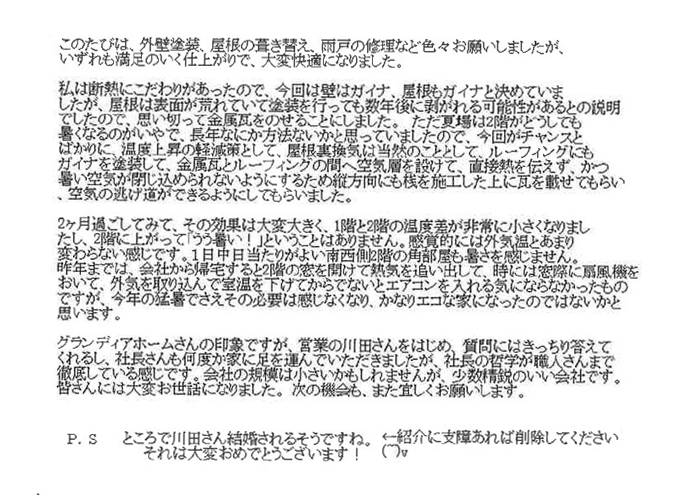 このたびは、外壁塗装、屋根の葺き替え、雨戸の修理など色々お願いしましたが、
いずれも満足のいく仕上がりで、大変快適になりました。
私は断熱にこだわりがあったので、今回は壁はガイナ、屋根もガイナと決めていま
したが、屋根は表面が荒れていて塗装を行っても数年後に剥がれる可能性があるとの説明
でしたので、思い切って金属瓦をのせることにしました。 ただ夏場は2階がどうしても
暑くなるのがいやで、長年なにか方法ないかと思っていましたので、今回がチャンスと
ばかりに、温度上昇の軽減策として、屋根裏換気は当然のこととして、ルーフィングにも
ガイナを塗装して、金属瓦とルーフィングの間へ空気層を設けて、直接熱を伝えず、かつ
暑い空気が閉じ込められないようにするため縦方向にも桟を施工した上に瓦を載せてもらい
、空気の逃げ道ができるようにしてもらいました。
2ヶ月過ごしてみて、その効果は大変大きく、1階と2階の温度差が非常に小さくなりまし
たし、2階に上がって「うう暑い！」ということはありません。感覚的には外気温とあまり
変わらない感じです。1日中日当たりがよい南西側2階の角部屋も暑さを感じません。
昨年までは、会社から帰宅すると2階の窓を開けて熱気を追い出して、時には窓際に扇風機を
おいて、外気を取り込んで室温を下げてからでないとエアコンを入れる気にならなかったもの
ですが、今年の猛暑でさえその必要は感じなくなり、かなりエコな家になったのではないかと
思います。
グランディアホームさんの印象ですが、営業の川田さんをはじめ、質問にはきっちり答えて
くれるし、社長さんも何度か家に足を運んでいただきましたが、社長の哲学が職人さんまで
徹底している感じです。会社の規模は小さいかもしれませんが、少数精鋭のいい会社です。
皆さんには大変お世話になりました。 次の機会も、また宜しくお願いします。
P．S　ところで川田さん結婚されるそうですね。 ←紹介に支障あれば削除してください
それは大変おめでとうございます！ (￣)v